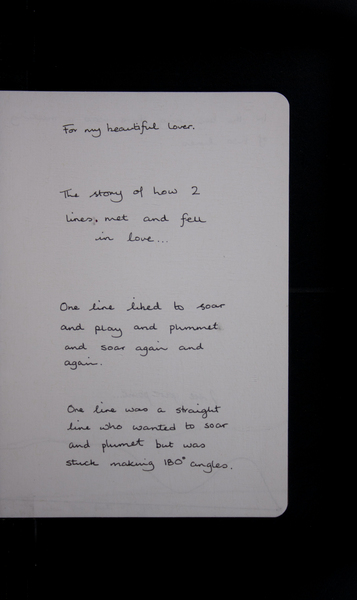 For my beautiful lover.
The story of how 2
lines, met and fell
in love...
One line liked to soar
and play and plummet
and soar again and
again.
One line was a straight
line who wanted to soar
and plumet but was
stuck making 180° angles.